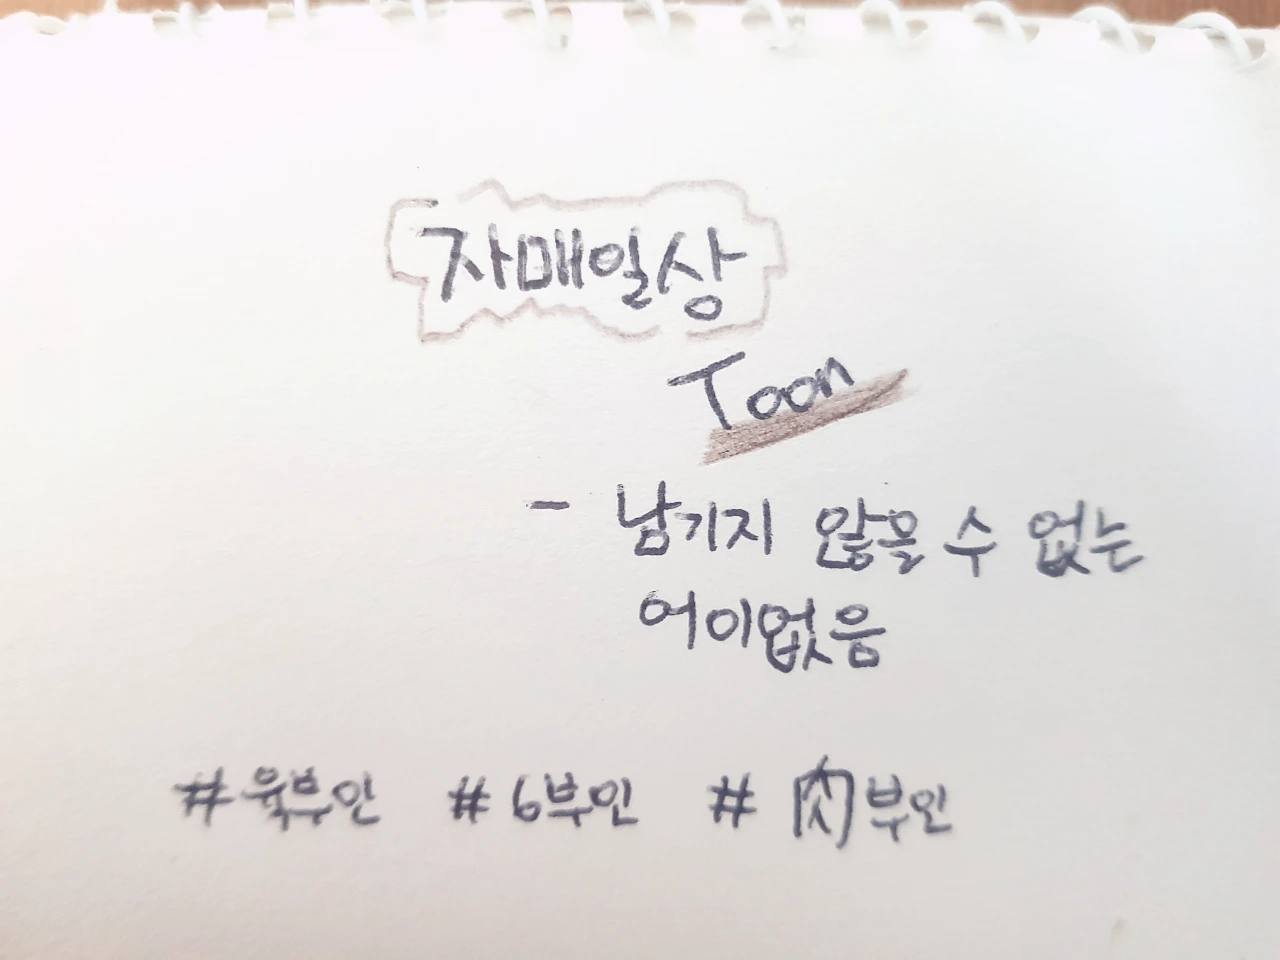 자매일상
Toon
- 남기지 않을 수 없는
어이없음
#육부인 #6부인 #肉부인